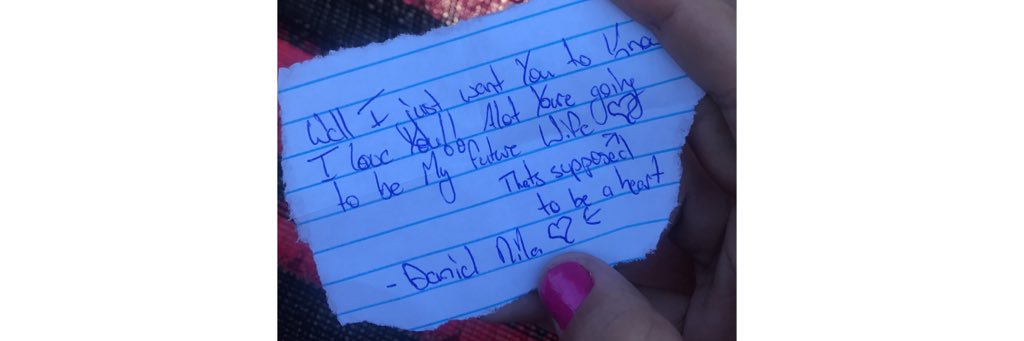 Well I just want You to Know
I love You!! Alot Youre going
to be My future Wife ♡
Thats supposed
to be a heart
- Daniel Mila ♡